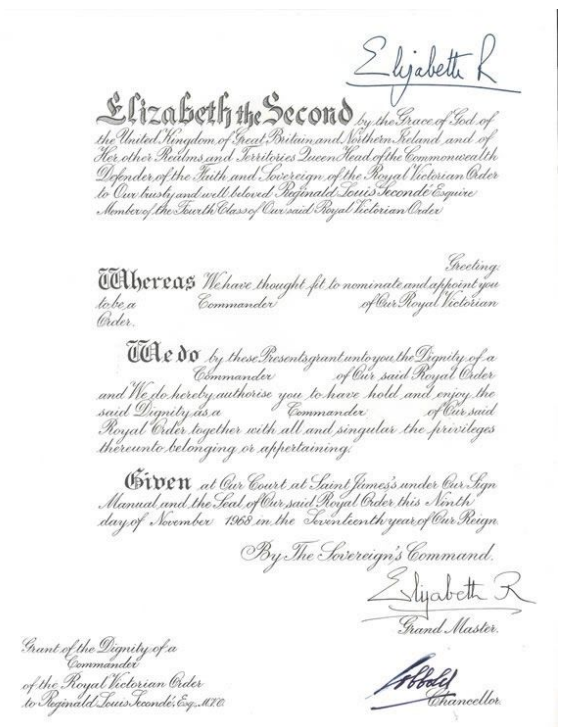 Elizabeth R
Elizabeth the Second by the Grace of God of
the United Kingdom of Great Britain and Northern Ireland and of
Her other Realms and Territories Queen Head of the Commonwealth
Defender of the Faith and Sovereign of the Royal Victorian Order
to Our trusty and well beloved Reginald Louis Secondé Esquire
Member of the Fourth Class of Our said Royal Victorian Order
Greeting:
Whereas We have thought fit to nominate and appoint you
to be a Commander of Our Royal Victorian
Order.
We do by these Presents grant unto you the Dignity of a
Commander of Our said Royal Order
and We do hereby authorise you to have hold and enjoy the
said Dignity as a Commander of Our said
Royal Order together with all and singular the privileges
thereunto belonging or appertaining.
Given at Our Court at Saint James's under Our Sign
Manual and the Seal of Our said Royal Order this Ninth
day of November 1968 in the Seventeenth year of Our Reign
By The Sovereign's Command.
Elizabeth R
Grand Master.
Grant of the Dignity of a
Commander
of the Royal Victorian Order
to Reginald Louis Secondé, Esq., M.V.O.
Cobbold
Chancellor